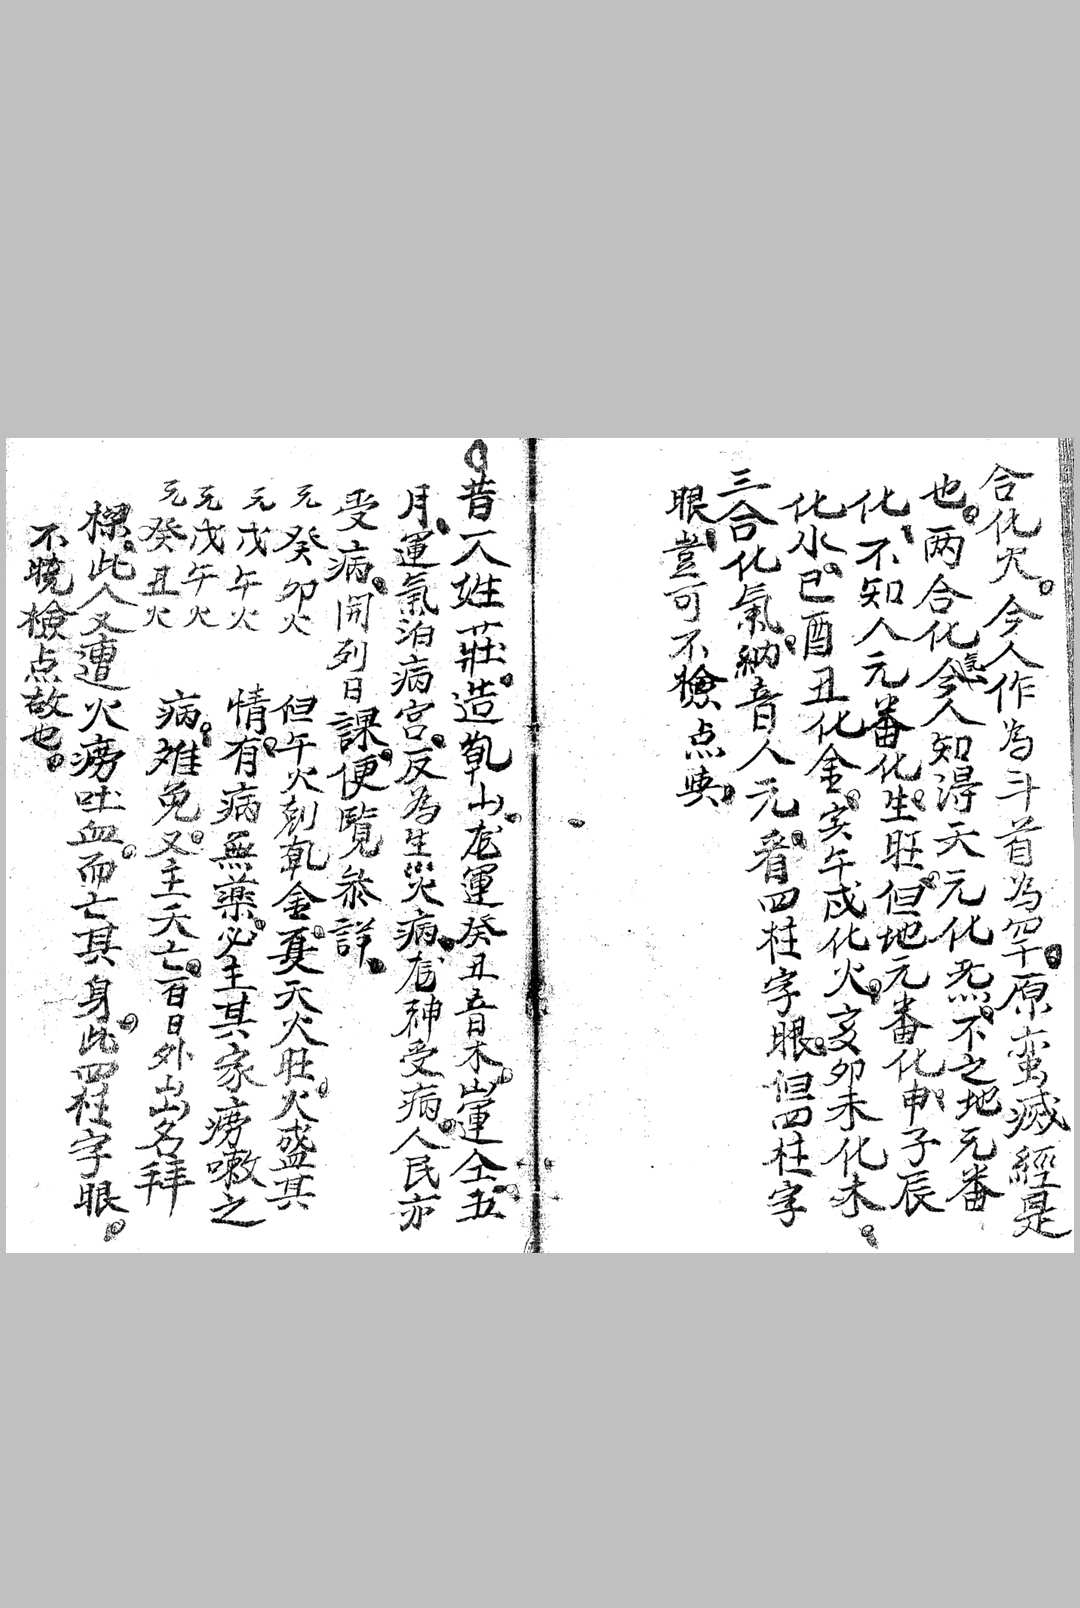 合化火。今人作為斗首為罕。原蛮滅經是
也。两合化炁今人知得天元化炁。不之地元番
化。不知人元番化生旺。但地元番化。申子辰
化水。巳酉丑化金。亥午戌化火。亥卯未化木。
三合化氣。納音人元。看四柱字眼。但四柱字
眼。豈可不檢点㖟。
昔一人姓莊。造乹山。尨運癸丑音木。山運仝五
月。運氣泊病宮。反為生災病。尨神受病。人民亦
受病。開列日課。便覽叅詳。
元癸卯火
元戊午火
元戊午火
元癸丑火
但午火剋乹金。夏天火旺。火盛其
情。有病無藥。必主其家癆嗽之
病。难免。又主夭亡。百日外出名拜
樑。此人又遭火癆吐血。而亡其身。此四柱字眼。
不曉檢点故也。